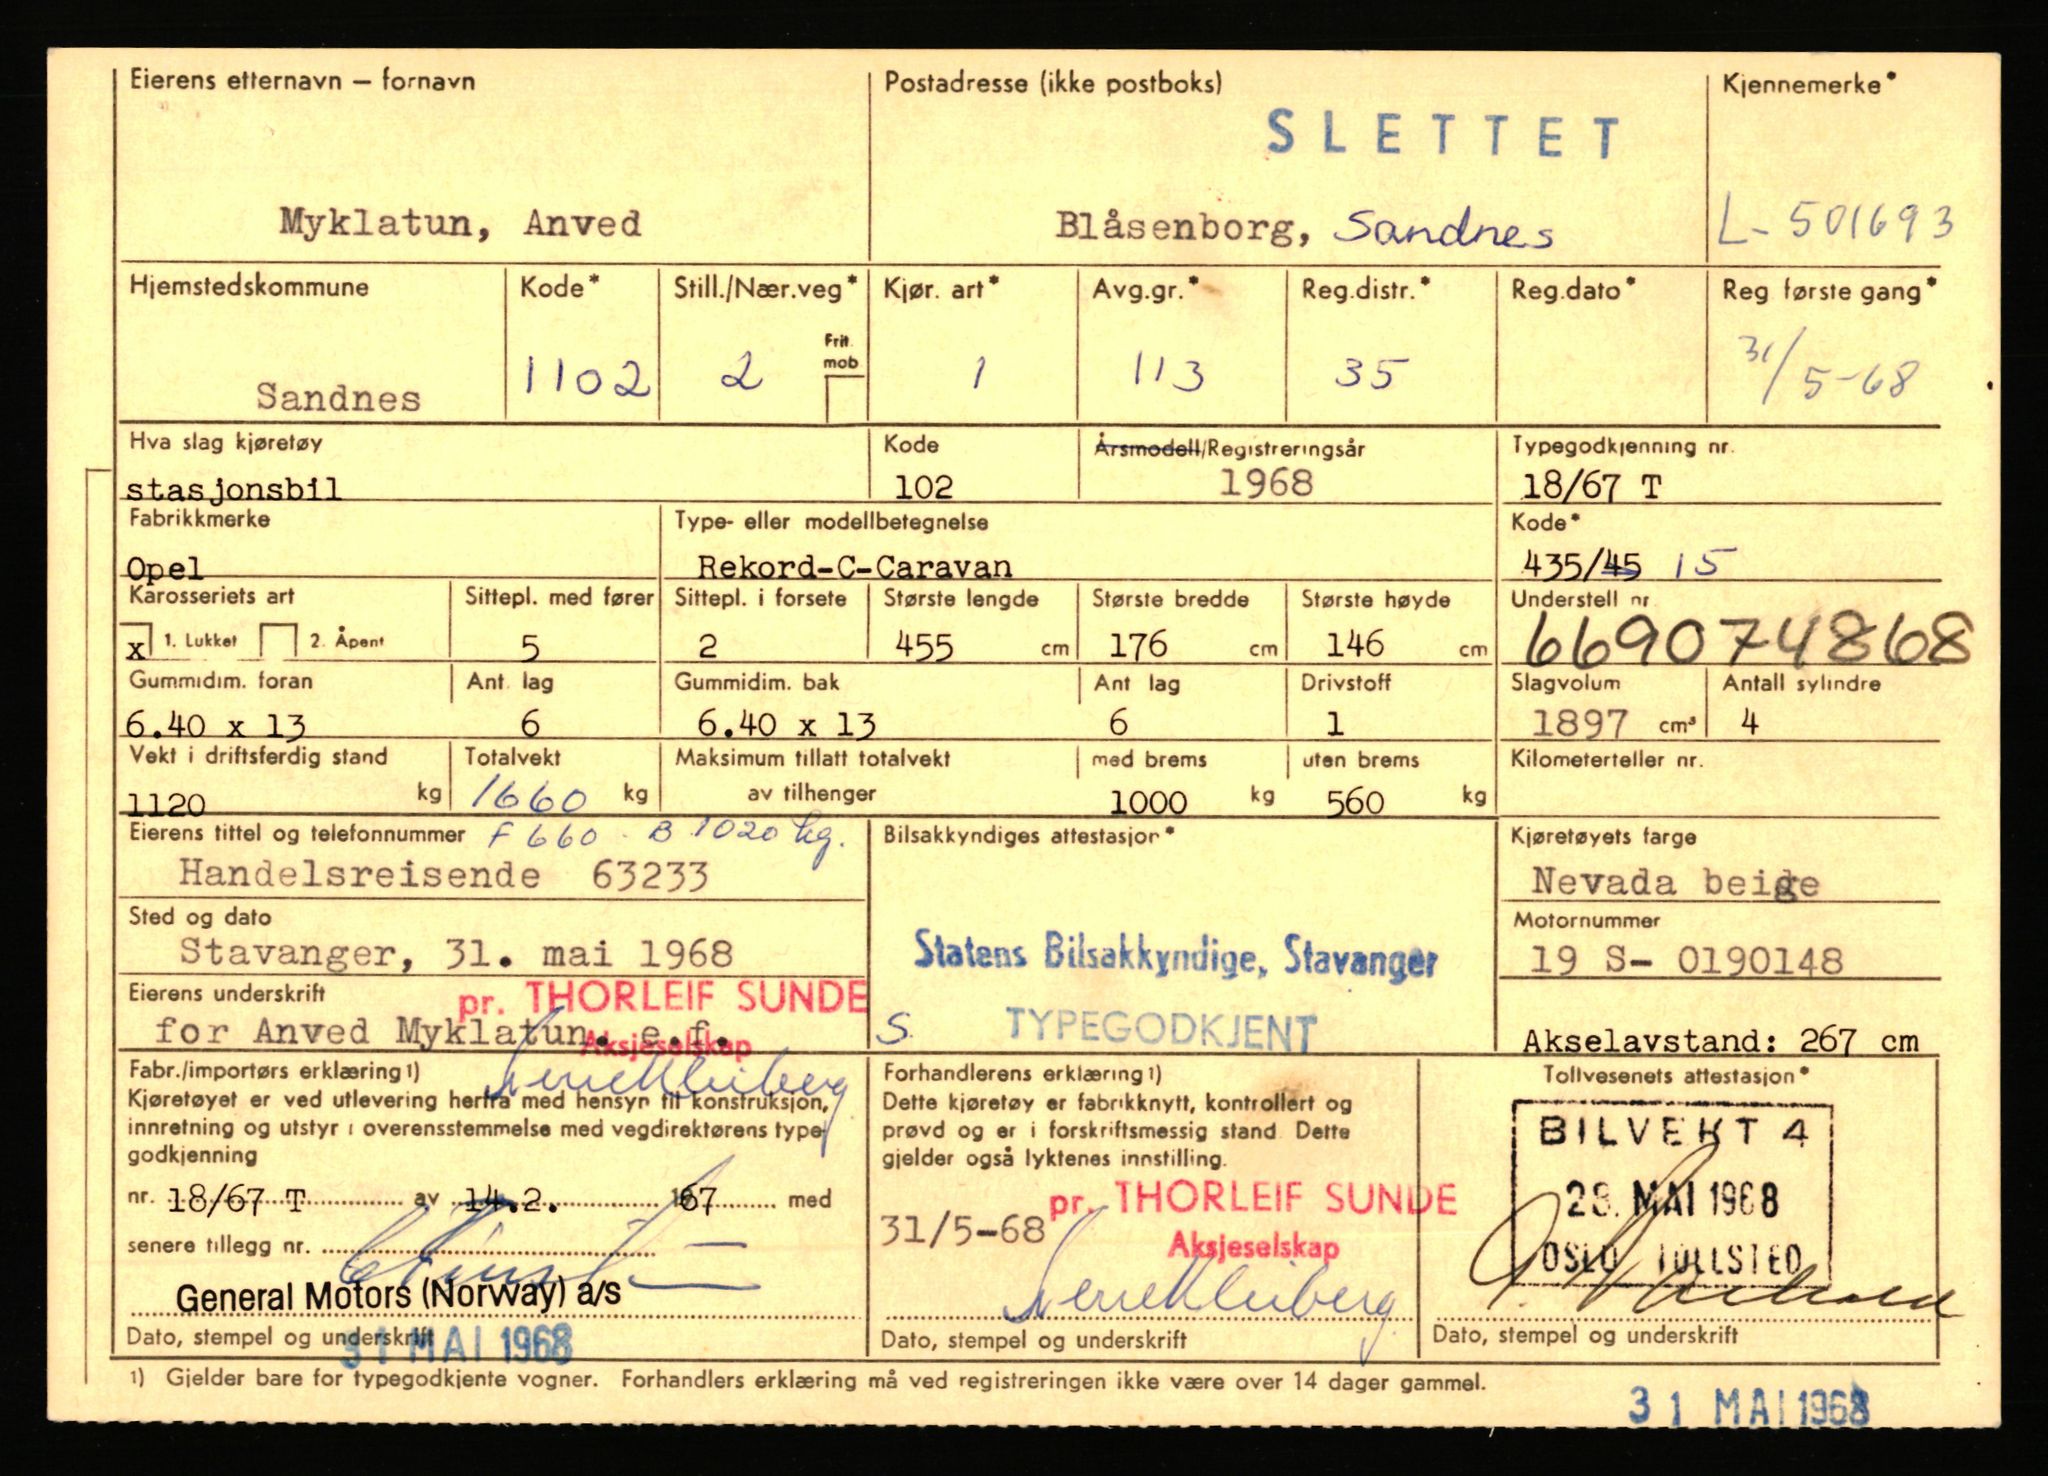 Eierens etternavn — fornavn
Postadresse (ikke postboks)
Kjennemerke*
SLETTET
Myklatun, Anved
Blåsenborg, Sandnes
L-501693
Hjemstedskommune
Kode*
Still./Nær.veg*
Kjør. art*
Avg.gr.*
Reg.distr.*
Reg.dato*
Reg første gang*
Frit. mob
Sandnes
1102
2
1
113
35
31/5-68
Hva slag kjøretøy
Kode
Årsmodell/Registreringsår
Typegodkjenning nr.
stasjonsbil
102
1968
18/67 T
Fabrikkmerke
Type- eller modellbetegnelse
Kode*
Opel
Rekord-C-Caravan
435/45 15
Karosseriets art
Sittepl. med fører
Sittepl. i forsete
Største lengde
Største bredde
Største høyde
Understell nr
x 1. Lukket 2. Åpent
5
2
455 cm
176 cm
146 cm
669074868
Gummidim. foran
Ant. lag
Gummidim. bak
Ant lag
Drivstoff
Slagvolum
Antall sylindre
6.40 x 13
6
6.40 x 13
6
1
1897 cm³
4
Vekt i driftsferdig stand
Totalvekt
Maksimum tillatt totalvekt
av tilhenger
med brems
uten brems
Kilometerteller nr.
1120 kg
1660 kg
1000 kg
560 kg
Eierens tittel og telefonnummer
F 660 - B 1020 kg.
Bilsakkyndiges attestasjon*
Kjøretøyets farge
Handelsreisende 63233
Nevada beige
Sted og dato
Motornummer
Stavanger, 31. mai 1968
Statens Bilsakkyndige, Stavanger
19 S- 0190148
Eierens underskrift
pr. THORLEIF SUNDE
Aksjeselskap
for Anved Myklatun. e.f.
S. TYPEGODKJENT
Akselavstand: 267 cm
Fabr./importørs erklæring 1)
Kjøretøyet er ved utlevering herfra med hensyn til konstruksjon,
innretning og utstyr i overensstemmelse med vegdirektørens type-
godkjenning
nr. 18/67 T av 14.2. 1967 med
senere tillegg nr.
General Motors (Norway) a/s
Dato, stempel og underskrift
31 MAI 1968
Forhandlerens erklæring 1)
Dette kjøretøy er fabrikknytt, kontrollert og
prøvd og er i forskriftsmessig stand. Dette
gjelder også lyktenes innstilling.
pr. THORLEIF SUNDE
31/5-68
Aksjeselskap
Dato, stempel og underskrift
Tollvesenets attestasjon*
BILVEKT 4
28. MAI 1968
OSLO TOLLSTED
Dato, stempel og underskrift
1) Gjelder bare for typegodkjente vogner. Forhandlers erklæring må ved registreringen ikke være over 14 dager gammel.
31 MAI 1968